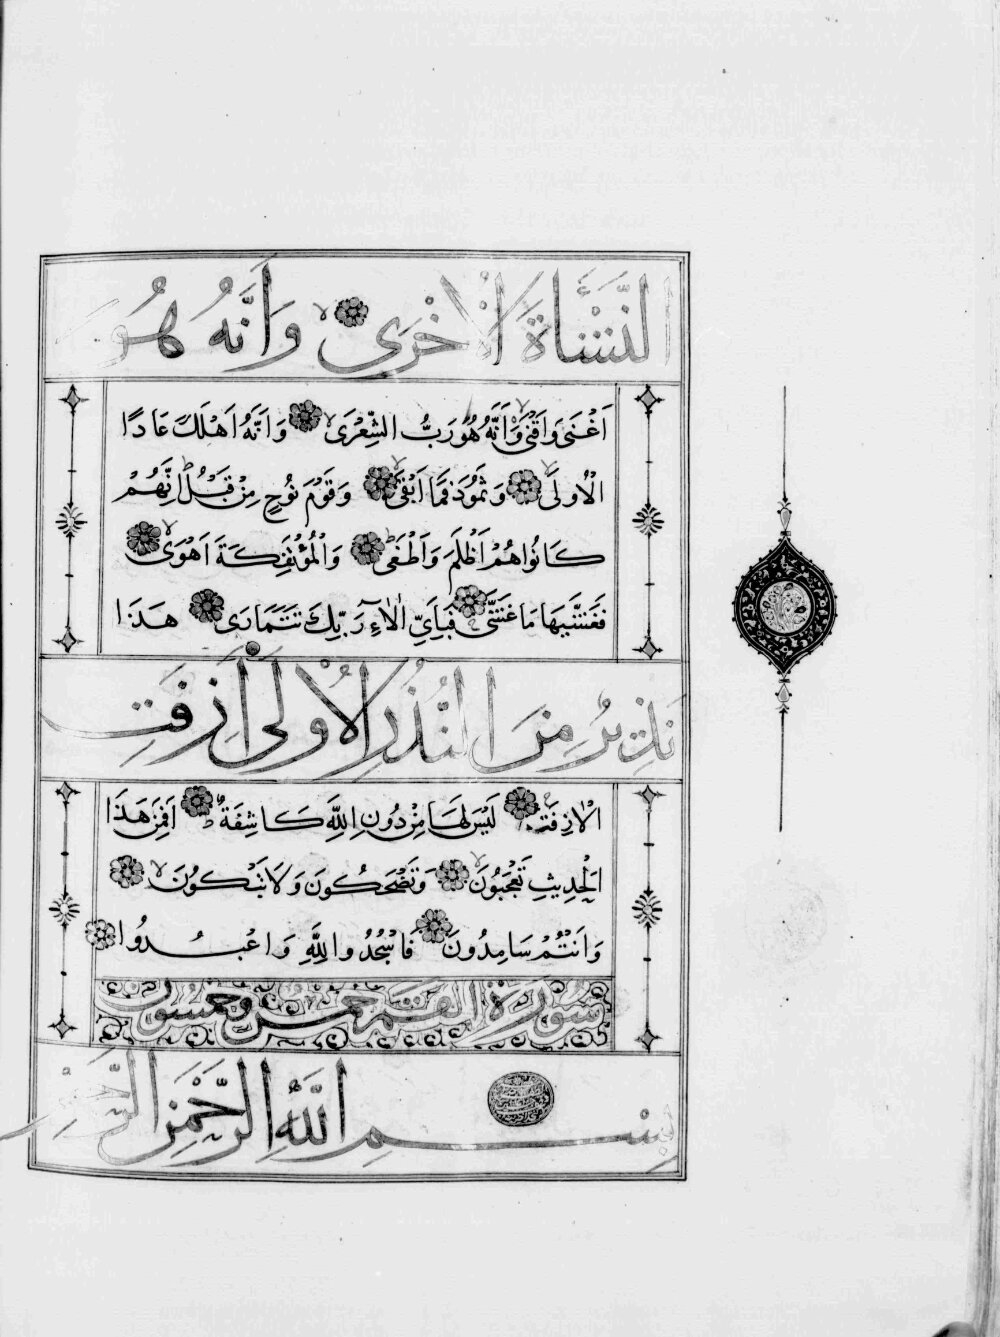 النَّشْأَةَ الْأُخْرَى وَأَنَّهُ هُوَ
اَغْنَى وَاَقْنَى وَاَنَّهُ هُوَ رَبُّ الشِّعْرَى وَاَنَّهُ اَهْلَكَ عَادًا
الْاُولَى وَثَمُودَ فَمَا اَبْقَى وَقَوْمَ نُوحٍ مِنْ قَبْلُ اِنَّهُمْ
كَانُوا هُمْ اَظْلَمَ وَاَطْغَى وَالْمُؤْتَفِكَةَ اَهْوَى
فَغَشَّيهَا مَا غَشَّى فَبِاَيِّ اٰلَاءِ رَبِّكَ تَتَمَارَى هَذَا
نَذِيرٌ مِنَ النُّذُرِ الْاُولَى اَزِفَتِ
الْاٰزِفَةُ لَيْسَ لَهَا مِنْ دُونِ اللَّهِ كَاشِفَةٌ اَفَمِنْ هَذَا
الْحَدِيثِ تَعْجَبُونَ وَتَضْحَكُونَ وَلَا تَبْكُونَ
وَاَنْتُمْ سَامِدُونَ فَاسْجُدُوا لِلَّهِ وَاعْبُدُوا
سورة القمر خمس وخمسون
بِسْمِ اللَّهِ الرَّحْمَنِ الرَّحِيمِ